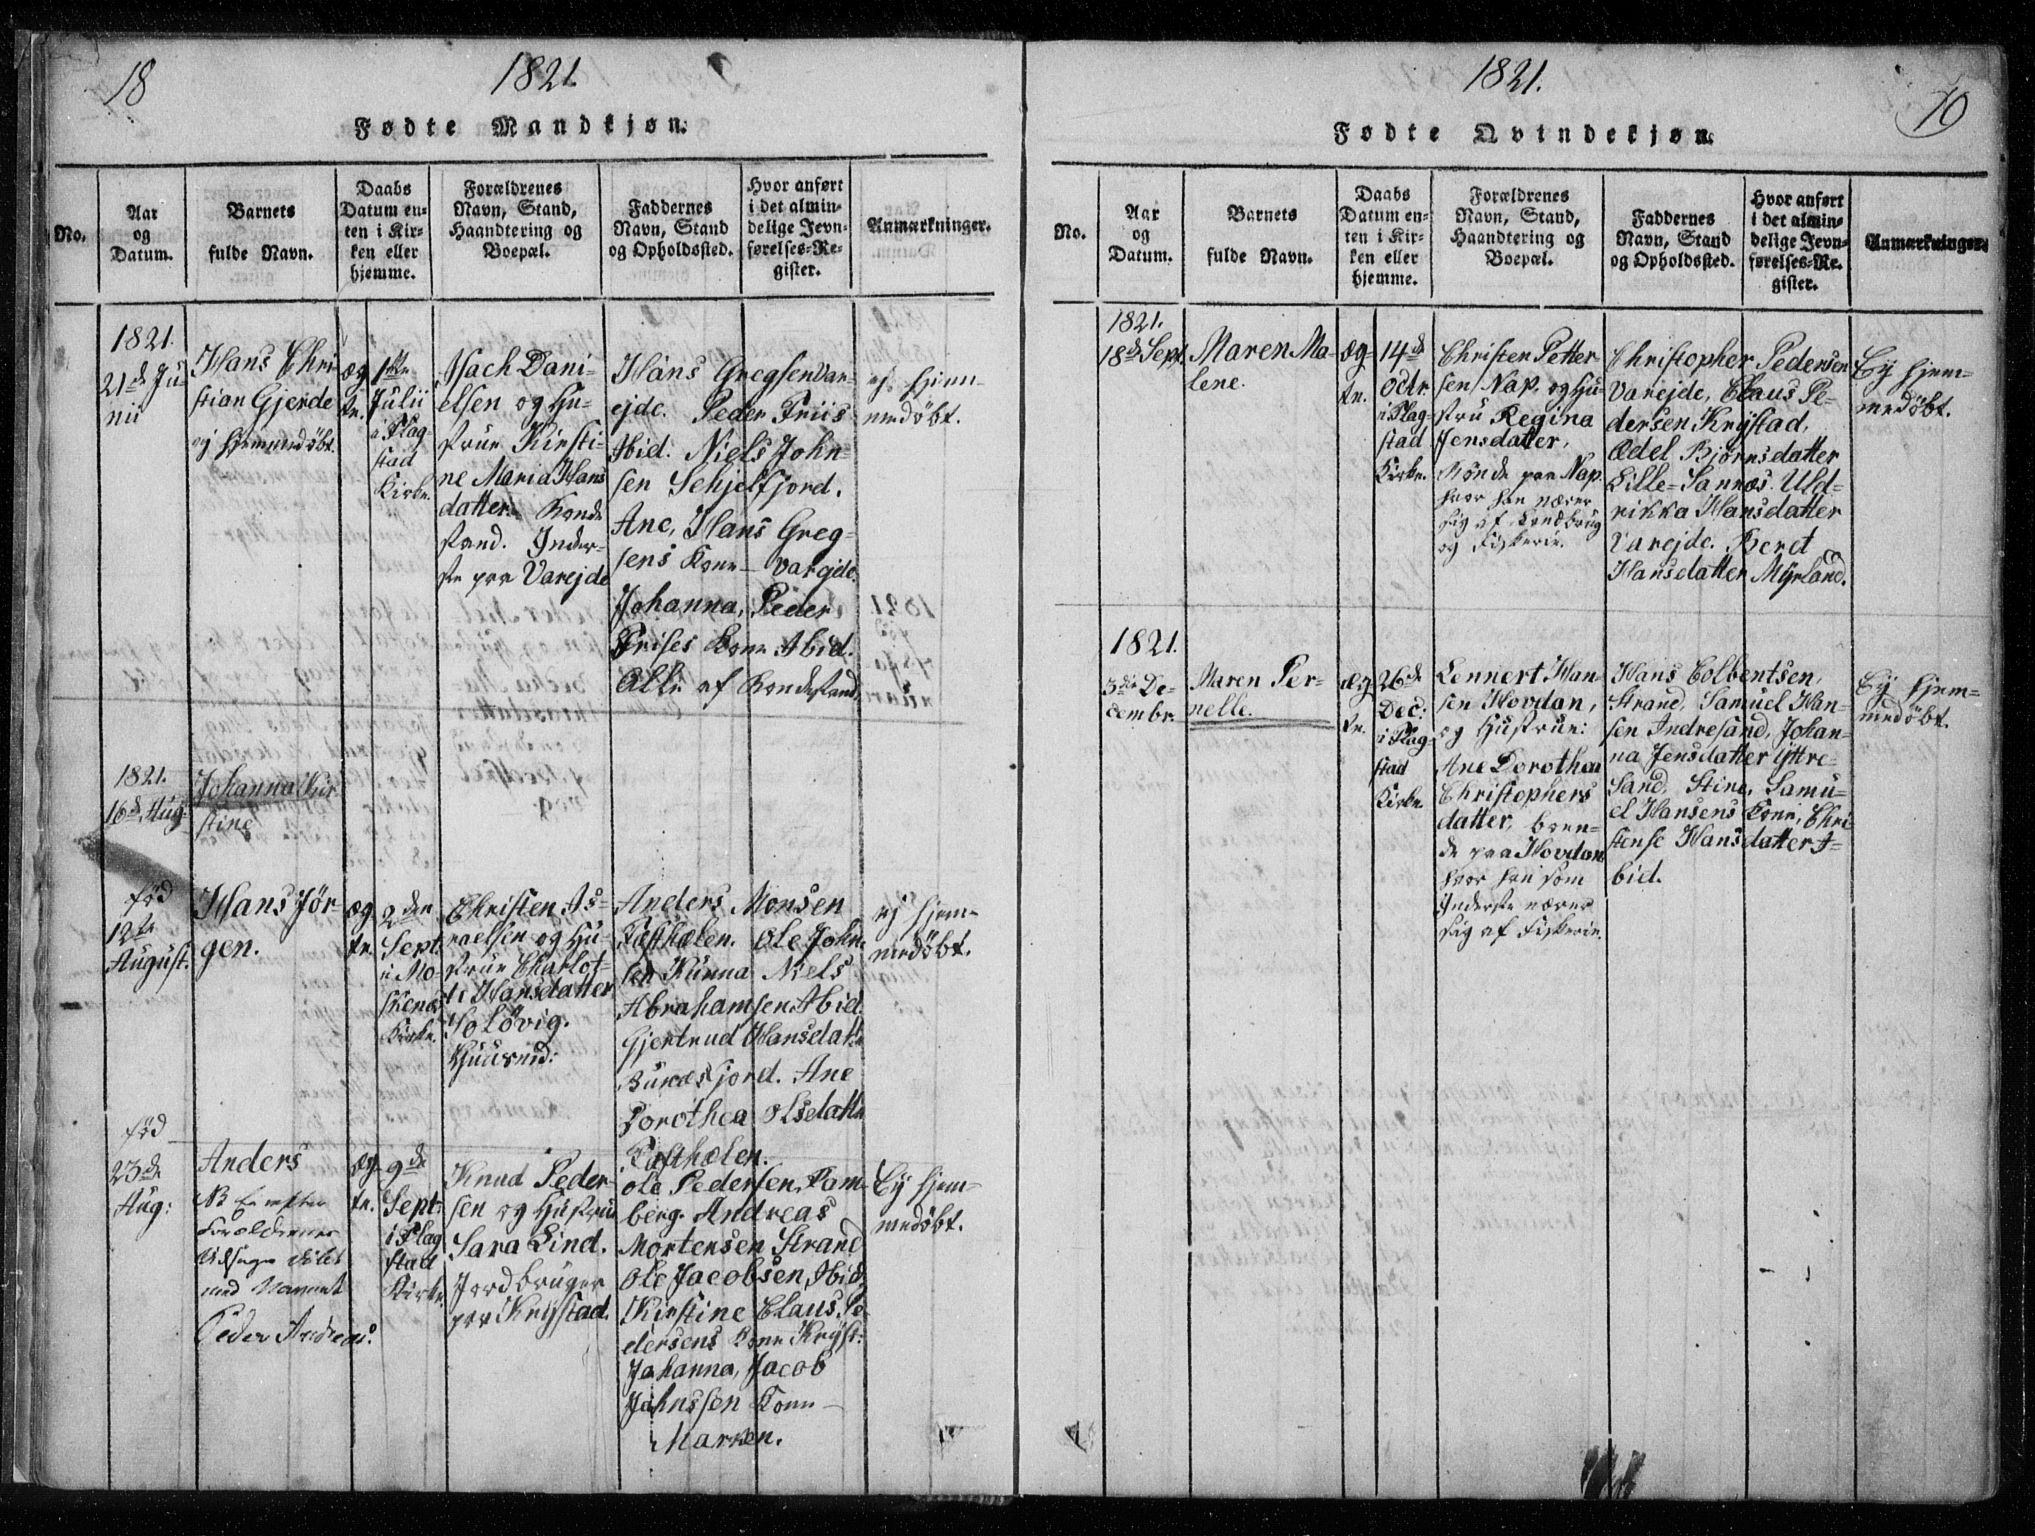 18
1821
Fødte Mandkjøn.
No.
Aar
og
Datum.
Barnets
fulde Navn.
Daabs
Datum en-
ten i Kir-
ken eller
hjemme.
Forældrenes
Navn, Stand,
Haandtering og
Boepæl.
Faddernes
Navn, Stand
og Opholdssted.
Hvor anført
i det almin-
delige Jevn-
førelses-Re-
gister.
Anmærkninger.
1821.
21de Ju-
nii
Hans Chri
stian Gjerde
ej hjemmedøbt.
æg
te.
1ste
Julii
i Flag
stad
Kirke.
Isach Dani-
elsen og Hu-
strue Kirsti-
ne Maria Hans
datter. Bonde
stand. Inder-
ste paa Varejde
Hans Gregsen Var-
ejde. Peder Friis
Ibid. Niels John-
sen Schjelfjord.
Ane, Hans Greg-
sens Kone Varejde.
Johanna, Peder
Frises Kone Ibid.
Alle af Bondestand.
ej hjem-
medøbt.
1821.
16de Aug:
Johanna Kir
stine
fød
12te
August.
Hans Jör-
gen.
æg
te.
2den
Sept.
i Mo-
skenæs
Kirke.
Christen Is-
raelsen og Hu-
strue Charlot-
te Hansdatter
Solövig.
Huusmd:
Anders Monsen
Fusthælen. Ole John-
sen Kunna Niels
Abrahamsen Ibid.
Gjertrud Hansdatt.
Bunesfjord. Ane
Dorothea Olsdatt.
Fusthælen.
ej hjem-
medøbt.
fød
23de
Aug:
Anders
NB Er efter
Forældrenes
Udsagn døbt
med Navnet
Peder Andreas.
æg
te.
9de
Sept:
i Flag
stad
Kirke.
Knud Peder-
sen og Hustrue
Sara Lind.
Jordbruger
paa Krystad.
Ole Pedersen, Ram-
berg. Andreas
Mortensen Strand
Ole Jacobsen, Ibid,
Kirstine Claus Pe-
dersens Kone Kryst:
Johanna, Jacob
Johnssen Kone
Marken.
Ey hjem-
medøbt.
1821.
10
Fødte Qvindekjøn.
No.
Aar
og
Datum.
Barnets
fulde Navn.
Daabs
Datum en-
ten i Kir-
ken eller
hjemme.
Forældrenes
Navn, Stand,
Haandtering og
Boepæl.
Faddernes
Navn, Stand
og Opholdssted.
Hvor anført
i det almin-
delige Jevn-
førelses-Re-
gister.
Anmærkninger.
1821.
18de Sept.
Maren Ma-
lene.
æg-
te.
14de
Octr.
i Flag-
stad
Kirke.
Christen Petter-
sen Nap, og Hu-
stru Regina
Jensdatter,
Bönde paa Nap.
hvor han nærer
sig af Jordbrug
og Fiskerie.
Christopher Pedersen
Varejde, Claus Pe-
dersen Krystad,
Ædel Bjørnsdatter
Lille-Sannæs. Uld-
rikka Hansdatter
Varejde. Beret
Hansdatter Myrland.
Ey hjem-
medøbt.
1821.
3die De-
cembr.
Maren Per-
nelle.
æg
te.
26de
Dec:
i Flag-
stad
Kirke
Lennert Han-
sen Hovdan,
og Hustrue:
Ane Dorothea
Christophers
datter, boen-
de paa Hovdan
hvor han som
Inderste nærer
sig af Fiskerie.
Hans Colbentsen,
Strand, Samuel Han-
sen Indresand, Johan-
na Jensdatter Yttre-
Sand, Stine, Samu-
el Hansens Kone, Chri
stense Hansdatter I-
bid.
Ey hjem-
medøbt.